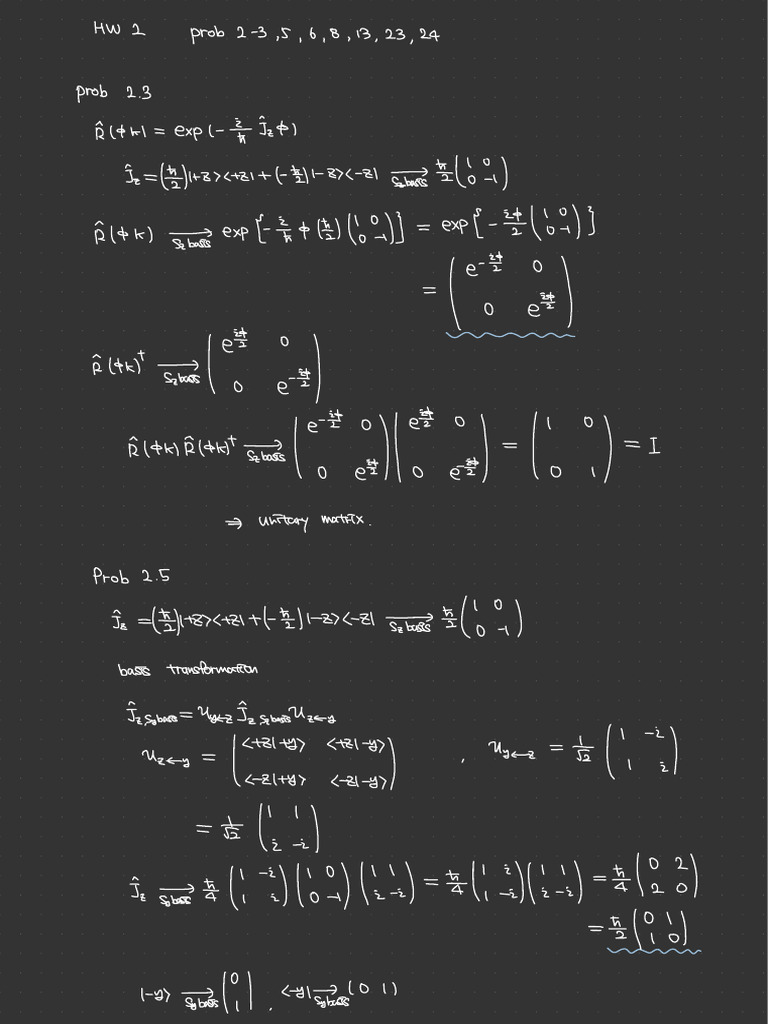 HW 2 prob 2-3, 5, 6, 8, 13, 23, 24
prob 2.3
R̂(φk) = exp(-i/ħ Ĵz φ)
Ĵz = (ħ/2)|+z><+z| + (-ħ/2)|-z><-z| →(Sz basis) ħ/2 (1 0; 0 -1)
R̂(φk) →(Sz basis) exp[-i/ħ φ (ħ/2) (1 0; 0 -1)] = exp[-iφ/2 (1 0; 0 -1)]
= (e^(-iφ/2) 0; 0 e^(iφ/2))
R̂(φk)† →(Sz basis) (e^(iφ/2) 0; 0 e^(-iφ/2))
R̂(φk) R̂(φk)† →(Sz basis) (e^(-iφ/2) 0; 0 e^(iφ/2)) (e^(iφ/2) 0; 0 e^(-iφ/2)) = (1 0; 0 1) = I
⇒ unitary matrix.
Prob 2.5
Ĵz = (ħ/2)|+z><+z| + (-ħ/2)|-z><-z| →(Sz basis) ħ/2 (1 0; 0 -1)
basis transformation
Ĵz,Sy basis = U y←z Ĵz,Sz basis U z←y
U z←y = (<+z|+y> <+z|-y>; <-z|+y> <-z|-y>) , U y←z = 1/√2 (1 -i; 1 i)
= 1/√2 (1 1; i -i)
Ĵz →(Sy basis) ħ/4 (1 -i; 1 i) (1 0; 0 -1) (1 1; i -i) = ħ/4 (1 i; 1 -i) (1 1; i -i) = ħ/4 (0 2; 2 0)
= ħ/2 (0 1; 1 0)
|-y> →(Sy basis) (0; 1) , <-y| →(Sy basis) (0 1)